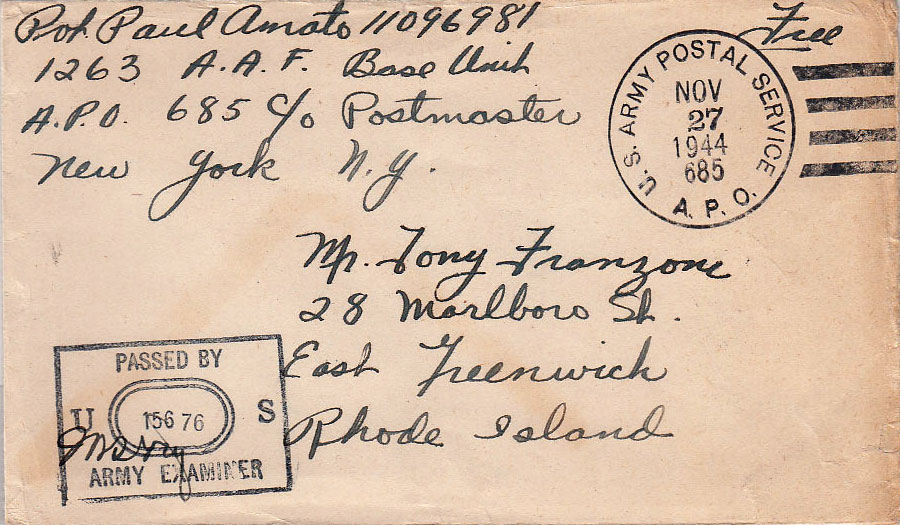 Pvt Paul Amato 11096981
1263 A.A.F. Base Unit
A.P.O. 685 c/o Postmaster
New York N.Y.
Free
U.S. ARMY POSTAL SERVICE
NOV
27
1944
685
A.P.O.
Mr. Tony Franzone
28 Marlboro St.
East Greenwich
Rhode Island
PASSED BY
U 15676 S
ARMY EXAMINER